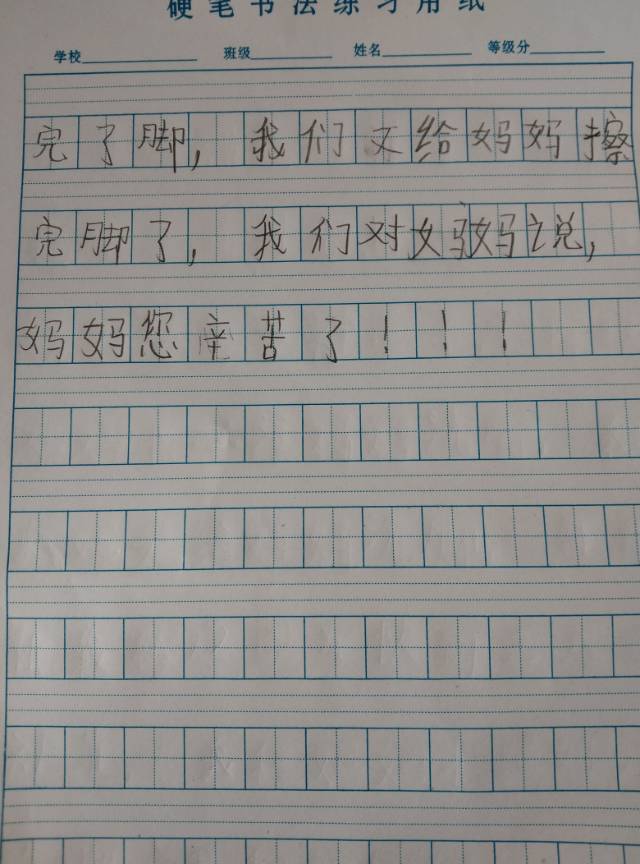 硬笔书法练习用纸
学校 班级 姓名 等级分
完了脚，我们文给妈妈擦
完脚了，我们对妈妈说，
妈妈您辛苦了！！！